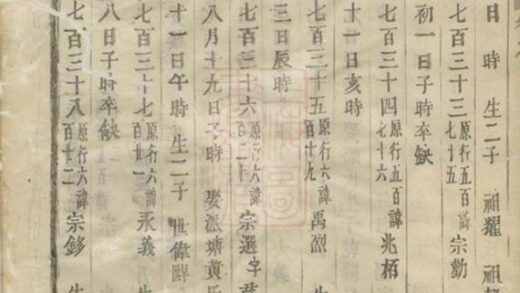 日時生二子祖耀祖
七百三十三原行五百七十五諱宗勳
初一日子時卒缺
七百三十四原行五百七十六諱兆栢
十一日亥時
七百三十五原行六百十九諱禹
三日辰時
七百三十六原行六百二十諱宗選字君
八月十九日子時娶派塘黃氏
十一日午時生二子世偉
七百三十七原行六百廿一諱永義生
八日子時卒缺
七百三十八原行六百廿二諱宗生